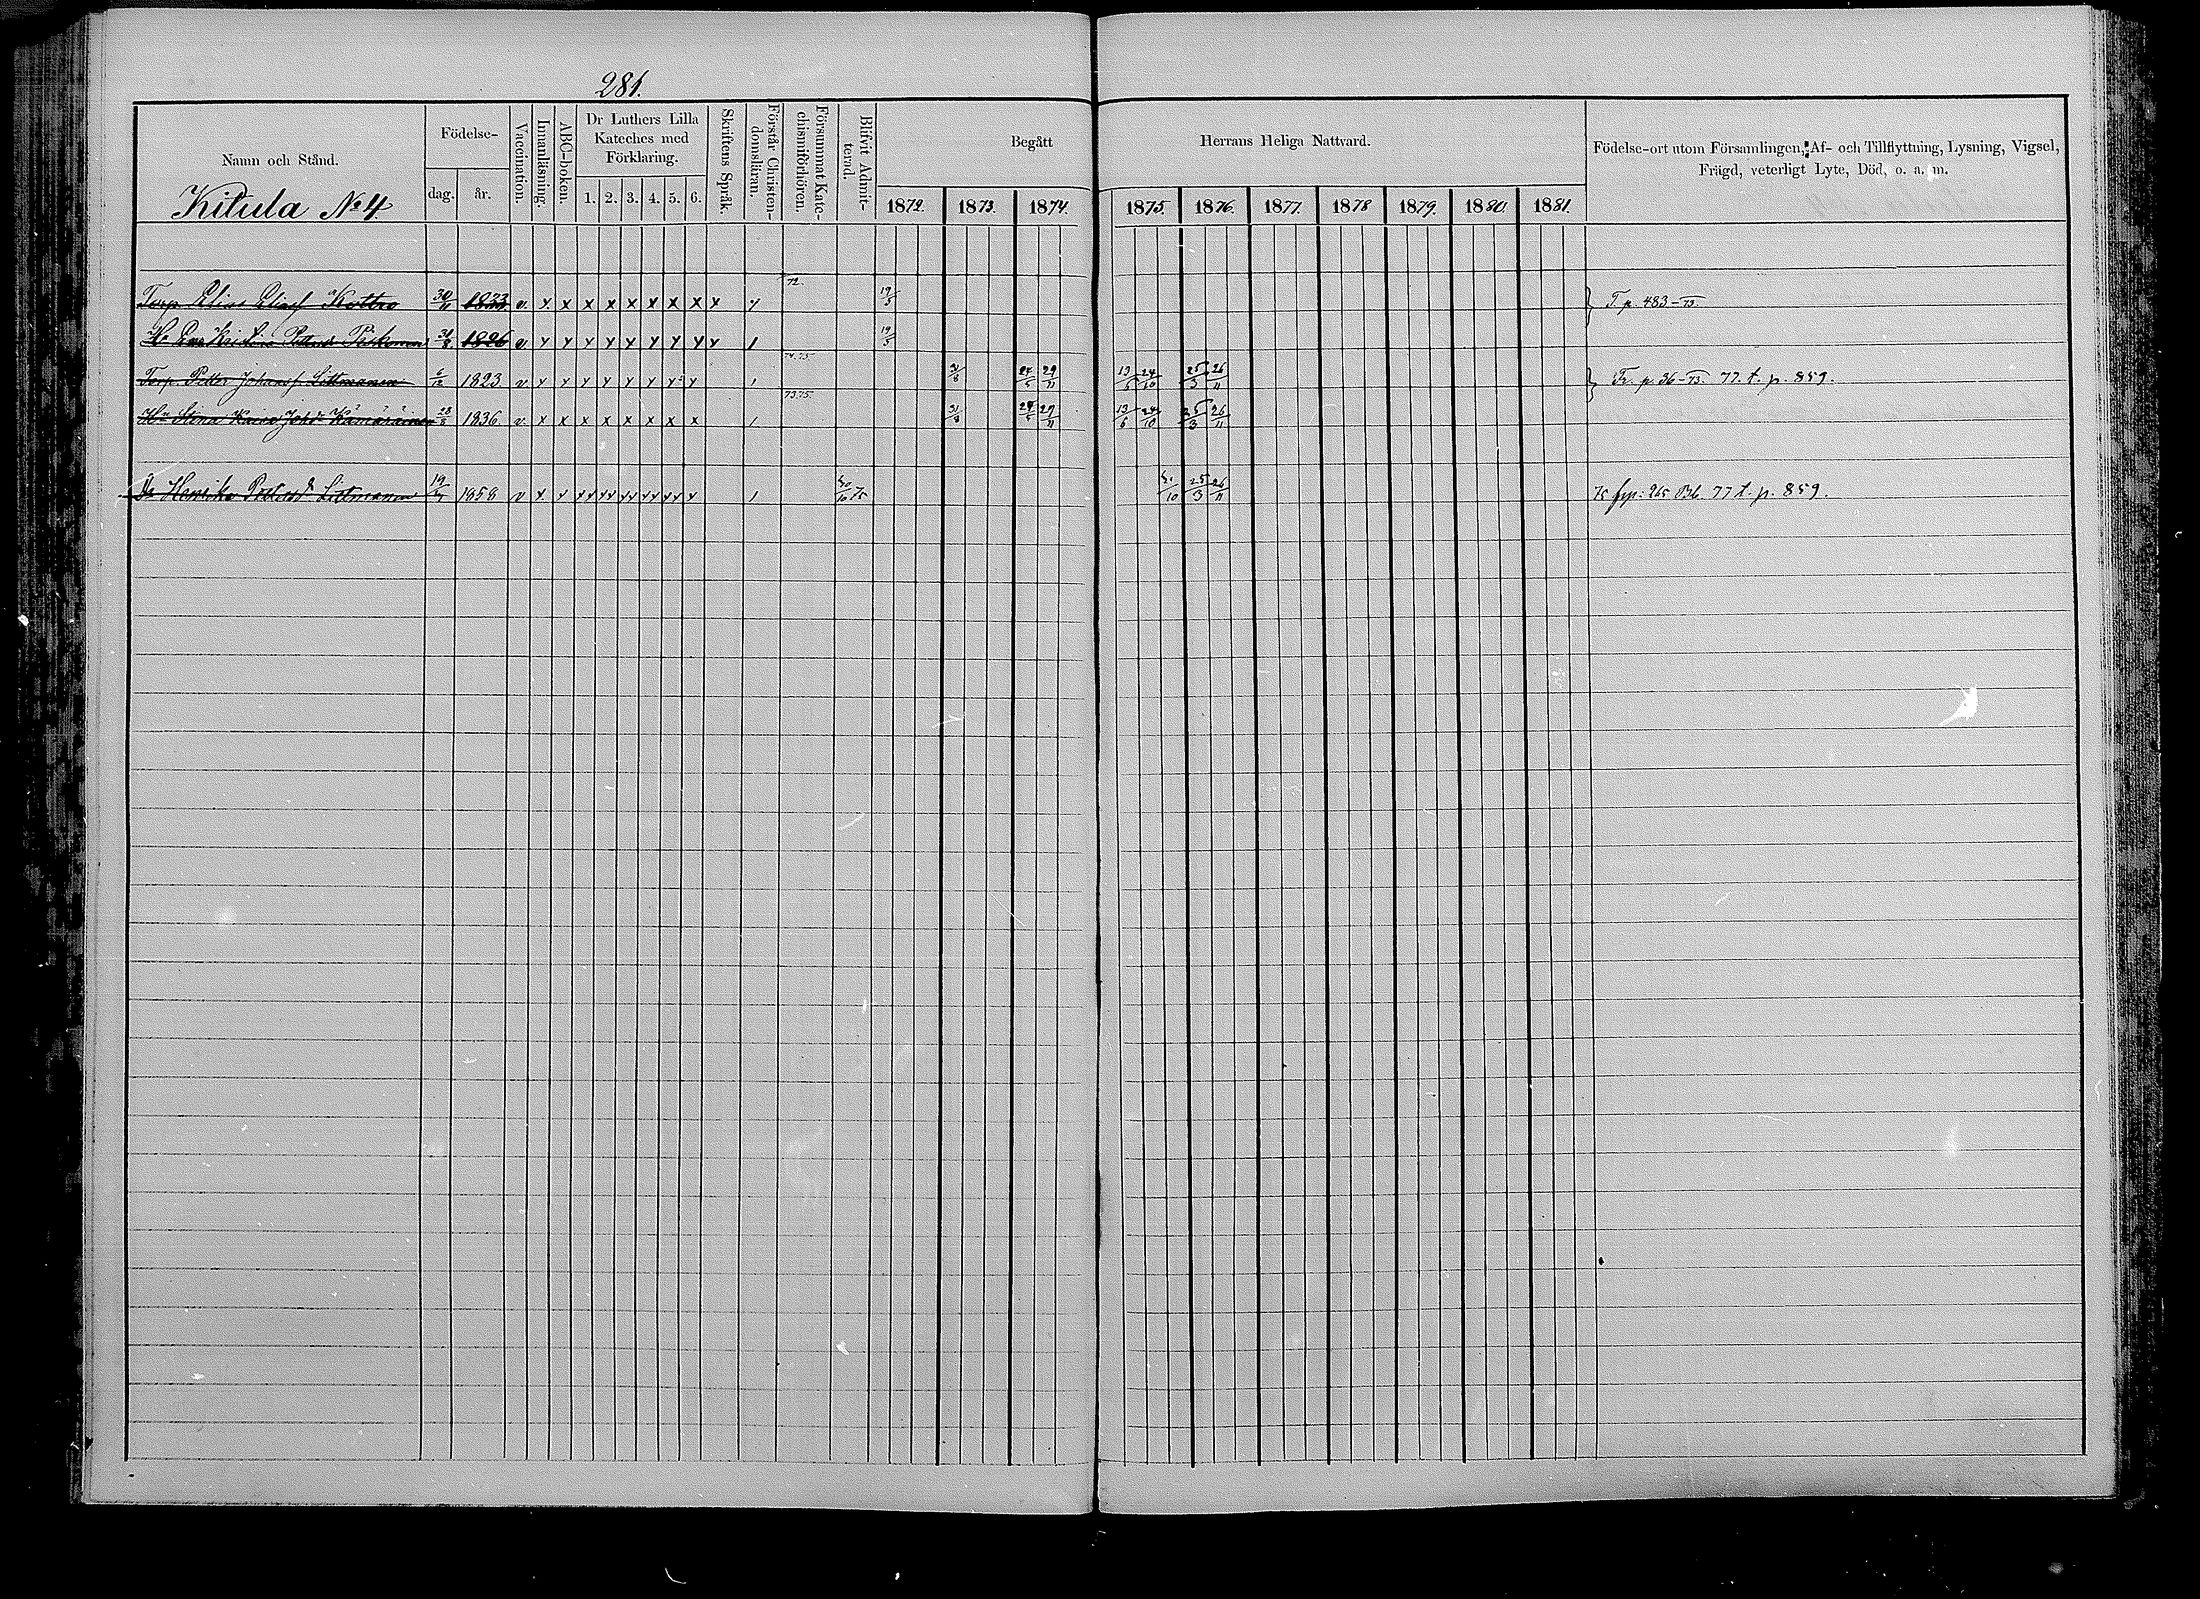 281.
Namn och Stånd.
Kitula No 4
Födelse-
dag. år.
Vaccination.
Innanläsning.
ABC-boken.
Dr Luthers Lilla
Kateches med
Förklaring.
1. 2. 3. 4. 5. 6.
Skriftens Språk.
Förstår Christen-
domsläran.
Försummat Kate-
chismiförhören.
Blifvit Admit-
terad.
Begått Herrans Heliga Nattvard.
1872. 1873. 1874. 1875. 1876. 1877. 1878 1879. 1880. 1881.
Födelse-ort utom Församlingen, Af- och Tillflyttning, Lysning, Vigsel,
Frägd, veterligt Lyte, Död, o. a. m.
72.
Torp. Elias Eliasf 30/11 1833 v. x x x x x x x x x 19/5 T. p. 483-73.
Hu Eva Kristina Pettersd 1826 v x x x x x x x x x 19/5
74.75
Torp. Petter Johansf Littmanen 6/12 1823 v x x x x x x x x 31/8 24/5 29/11 13/6 24/10 25/3 26/11 Fr. p. 36-73. 77. t. p. 859.
73.75.
Hu Stina Kaisa Johsd Kämäräinen 28/8 1836. v x x x x x x x x 31/8 24/5 29/11 13/6 24/10 25/3 26/11
Dr Henrika Pettersd Littmanen 1858 v x x xx xx xx xx xx x 75 25/3 26/11 75 265 77 t. p. 859.